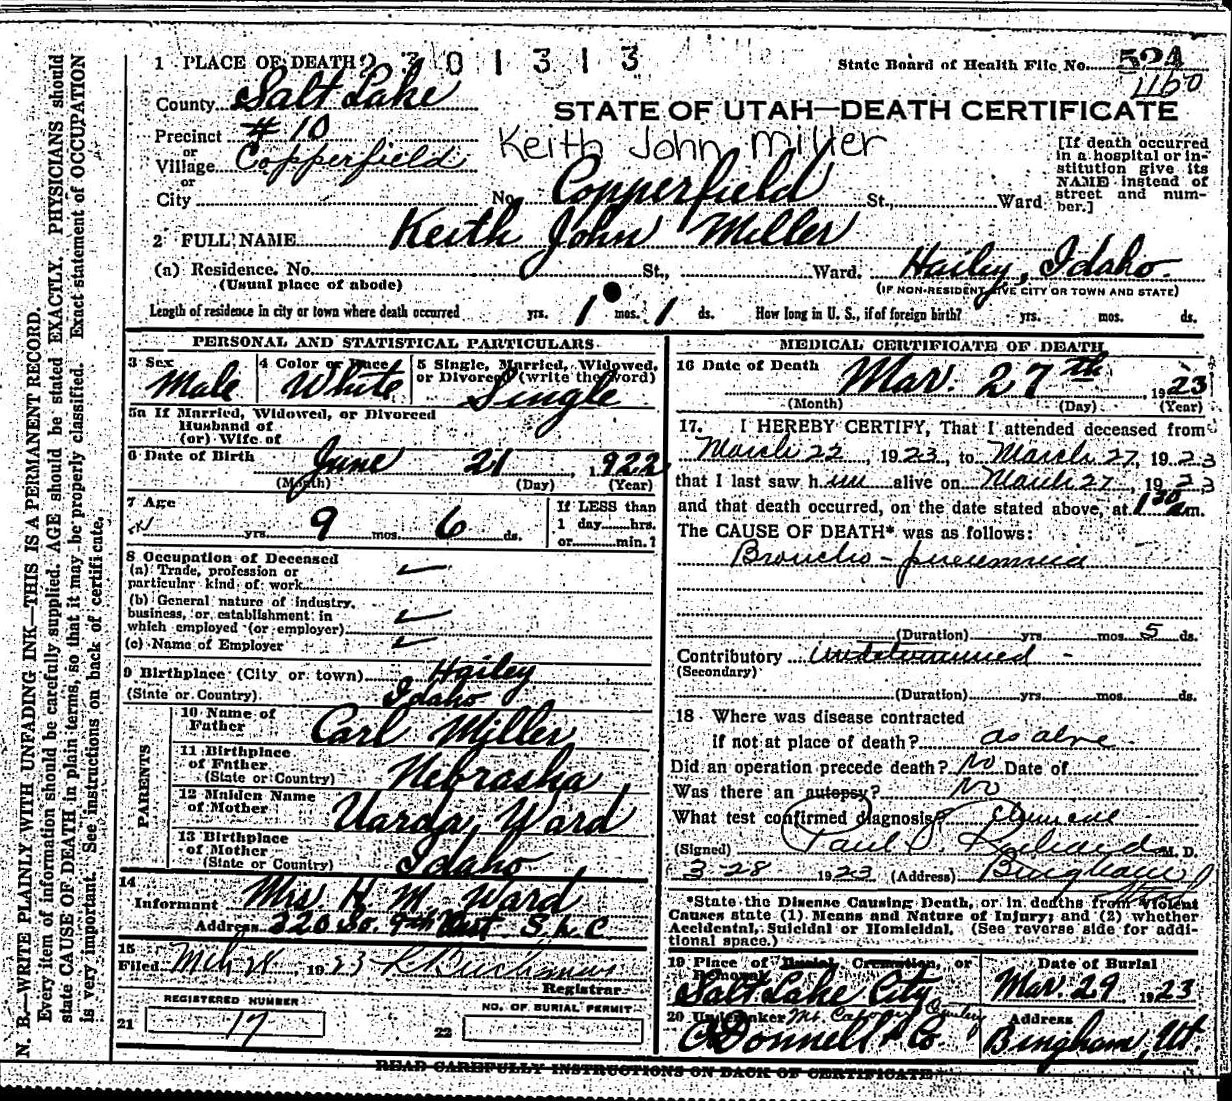 1 PLACE OF DEATH 2 3 0 1 3 1 3
State Board of Health File No. 524
1160
County Salt Lake
STATE OF UTAH—DEATH CERTIFICATE
Precinct # 10
Keith John Miller
or
Village Copperfield
or
City
No. Copperfield St., Ward
[If death occurred in a hospital or in-
stitution give its
NAME instead of
street and num-
ber.]
2 FULL NAME Keith John Miller
(a) Residence. No. St., Ward. Hailey, Idaho.
(Usual place of abode)
(IF NON-RESIDENT GIVE CITY OR TOWN AND STATE)
Length of residence in city or town where death occurred yrs. 1 mos. 1 ds. How long in U. S., if of foreign birth? yrs. mos. ds.
PERSONAL AND STATISTICAL PARTICULARS
3 Sex
Male
4 Color or Race
White
5 Single, Married, Widowed,
or Divorced (write the word)
Single
5a If Married, Widowed, or Divorced
Husband of
(or) Wife of
6 Date of Birth June 21, 1922
(Month) (Day) (Year)
7 Age
yrs. 9 mos. 6 ds.
If LESS than
1 day hrs.
or min. ?
8 Occupation of Deceased
(a) Trade, profession or
particular kind of work
(b) General nature of industry,
business, or establishment in
which employed (or employer)
(c) Name of Employer
9 Birthplace (City or town) Hailey
(State or Country) Idaho
PARENTS
10 Name of
Father Carl Miller
11 Birthplace
of Father
(State or Country) Nebraska
12 Maiden Name
of Mother Varda Ward
13 Birthplace
of Mother
(State or Country) Idaho
14
Informant Mrs H. M. Ward
Address 220 So. 9th East S. L. C
15
Filed Mch 28 1923 Buchanan
Registrar
REGISTERED NUMBER
21 17
NO. OF BURIAL PERMIT
22
MEDICAL CERTIFICATE OF DEATH
16 Date of Death Mar. 27th 1923
(Month) (Day) (Year)
17. I HEREBY CERTIFY, That I attended deceased from
March 22, 1923, to March 27, 1923
that I last saw him alive on March 27, 1923
and that death occurred, on the date stated above, at 1 30 a m.
The CAUSE OF DEATH* was as follows:
Broncho-pneumonia
(Duration) yrs. mos. 5 ds.
Contributory Undetermined -
(Secondary)
(Duration) yrs. mos. ds.
18 Where was disease contracted
if not at place of death? as above
Did an operation precede death? No Date of
Was there an autopsy? No
What test confirmed diagnosis? Clinical
(Signed) Paul S. Richards M. D.
3-28 1923 (Address) Bingham Utah
*State the Disease Causing Death, or in deaths from Violent
Causes state (1) Means and Nature of Injury; and (2) whether
Accidental, Suicidal or Homicidal. (See reverse side for addi-
tional space.)
19 Place of Burial, Cremation, or
Removal
Salt Lake City
Date of Burial
Mar. 29 1923
20 Undertaker Mt. Calvary Cemetery
O'Donnell & Co.
Address
Bingham, Ut.
READ CAREFULLY INSTRUCTIONS ON BACK OF CERTIFICATE
N. B.—WRITE PLAINLY WITH UNFADING INK—THIS IS A PERMANENT RECORD.
Every item of information should be carefully supplied. AGE should be stated EXACTLY. PHYSICIANS should
state CAUSE OF DEATH in plain terms, so that it may be properly classified. Exact statement of OCCUPATION
is very important. See instructions on back of certificate.